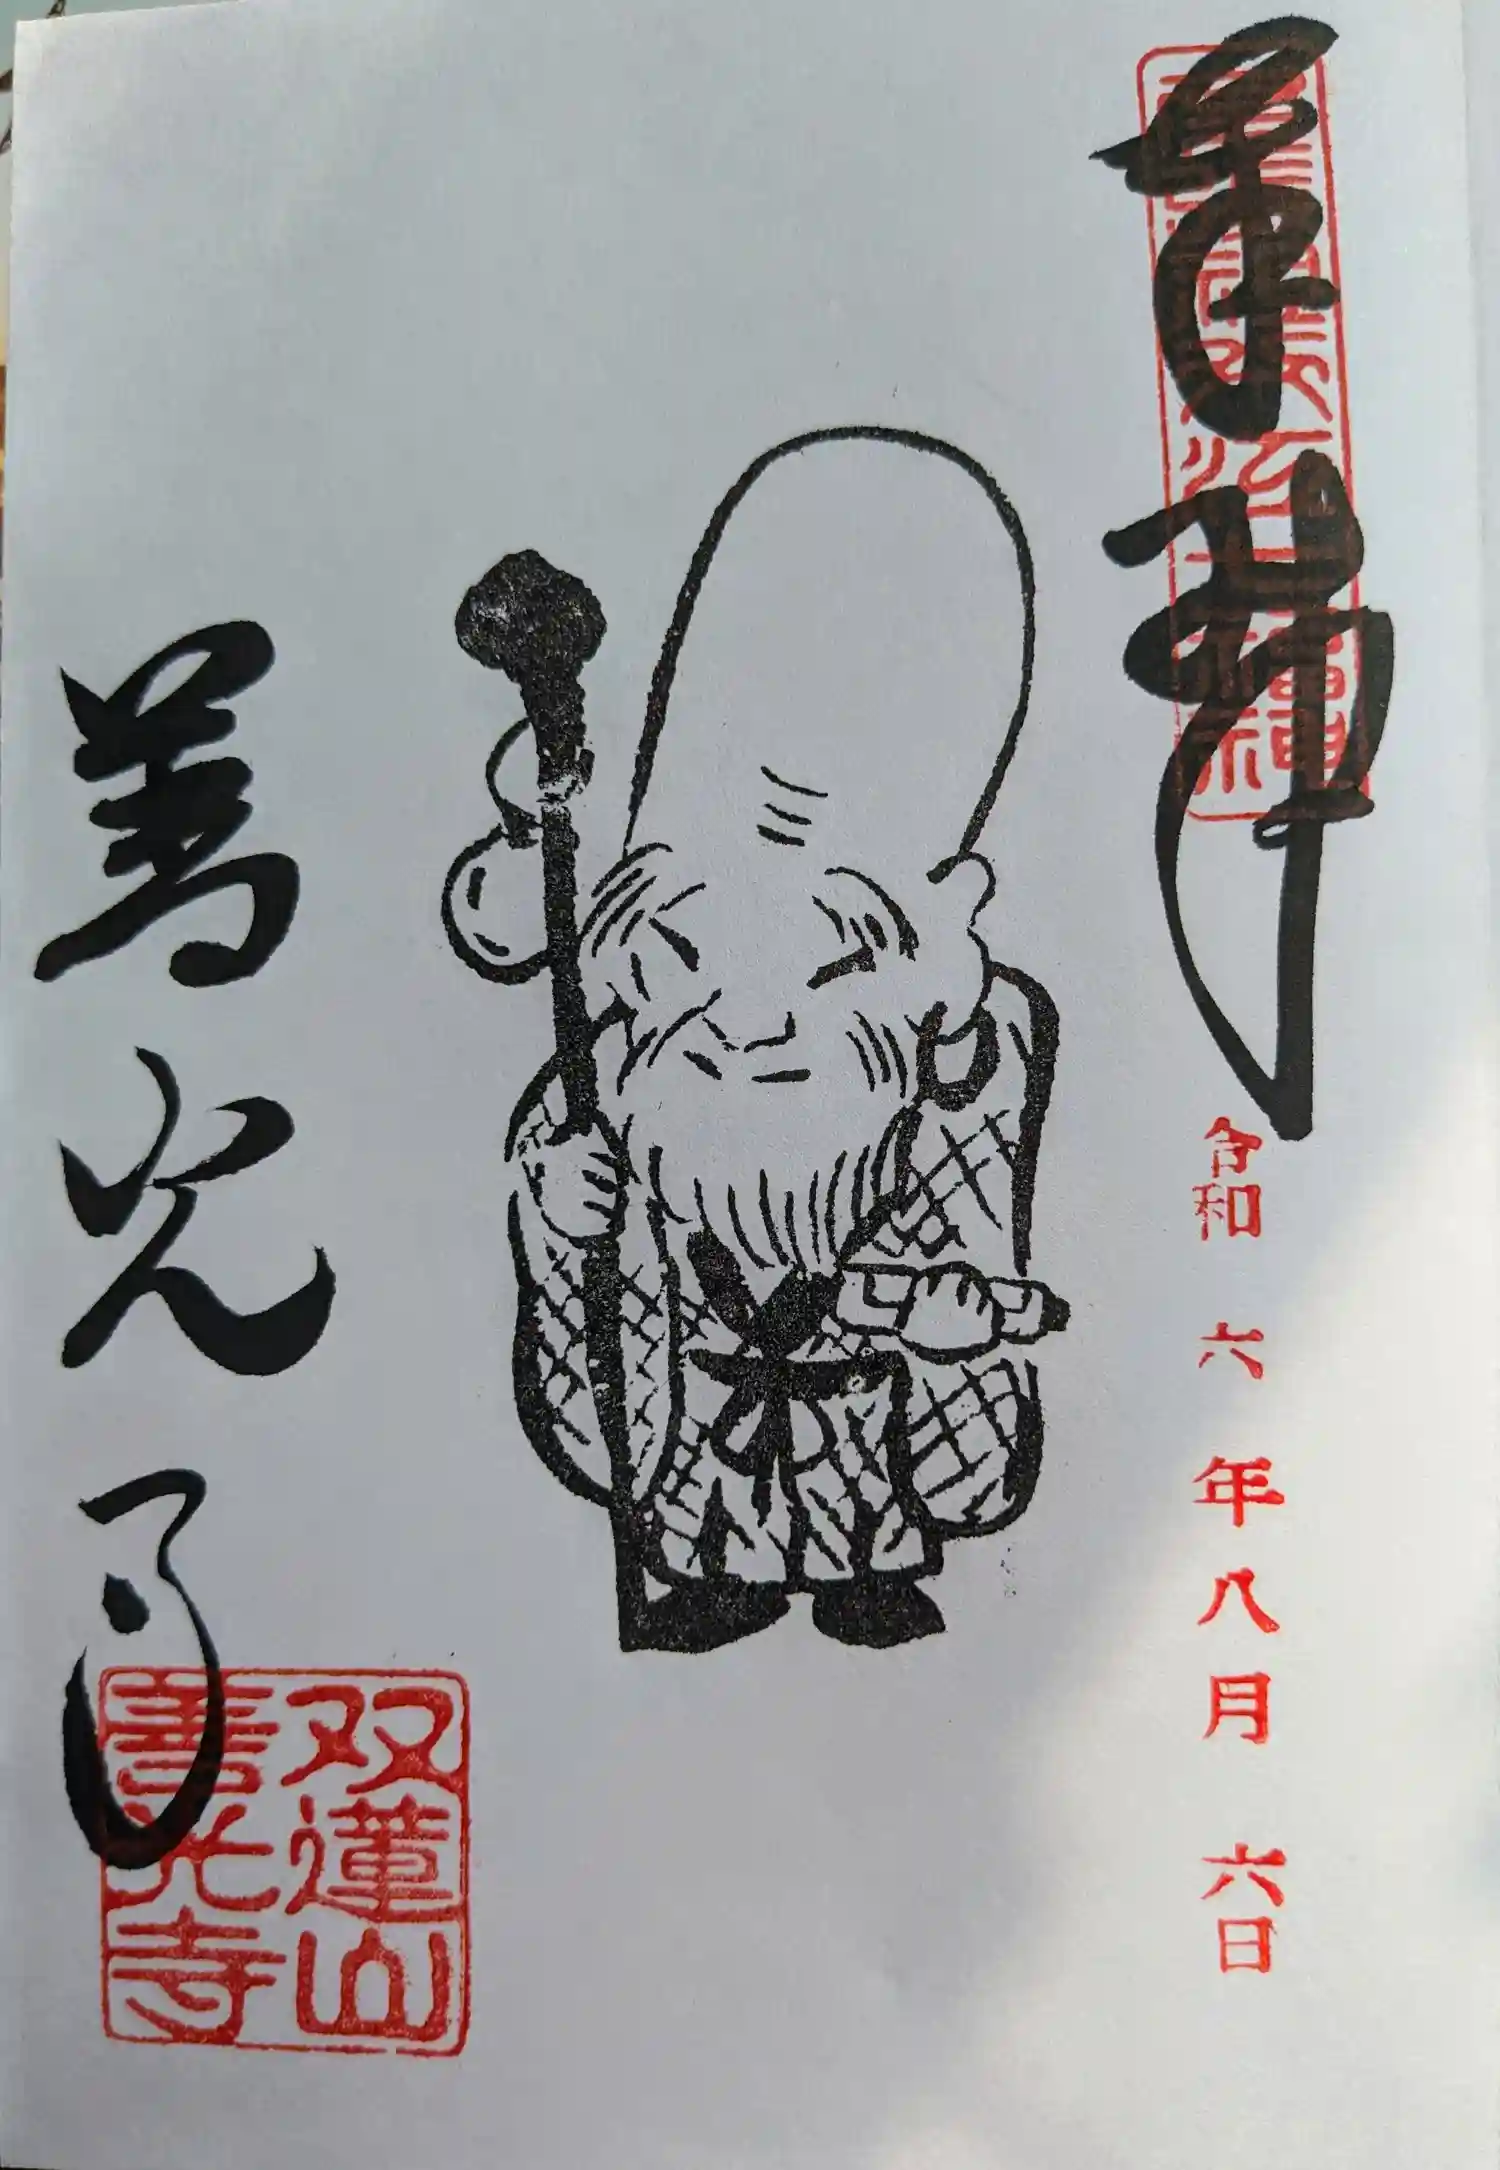 奉拝
令和 六 年 八 月 六 日
善光寺
双蓮山
善光寺